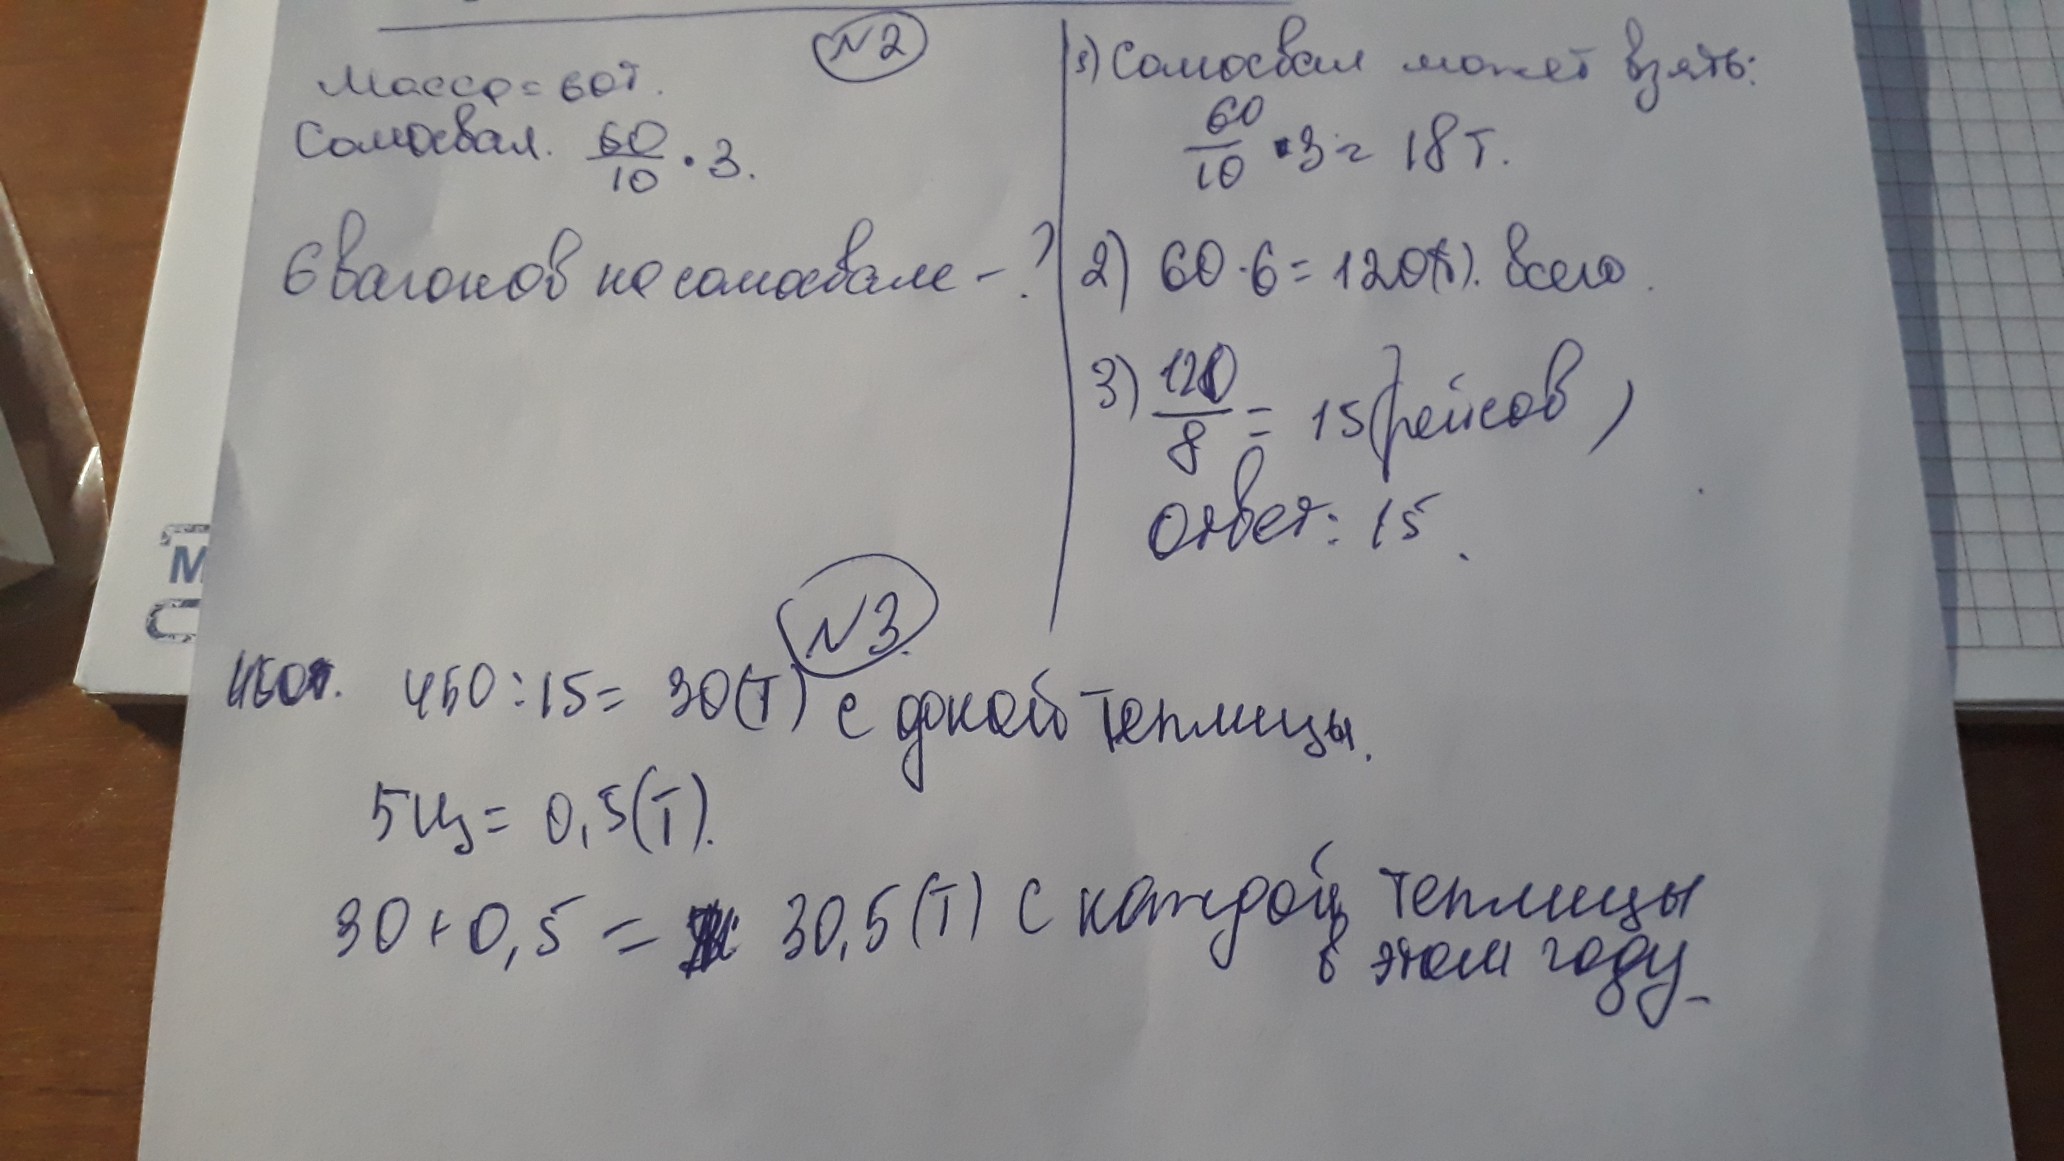 N2
Масса = 60т.
Самосвал. 60/10 · 3.
6 вагонов на самосвале - ?
1) Самосвал может взять:
60/10 · 3 = 18 т.
2) 60 · 6 = 120(т). Всего.
3) 120/8 = 15 рейсов,
Ответ: 15.
N3.
450т. 450 : 15 = 30(т) с одной теплицы.
5ц = 0,5(т).
30 + 0,5 = 30,5 (т) с каждой теплицы
в этом году.
М